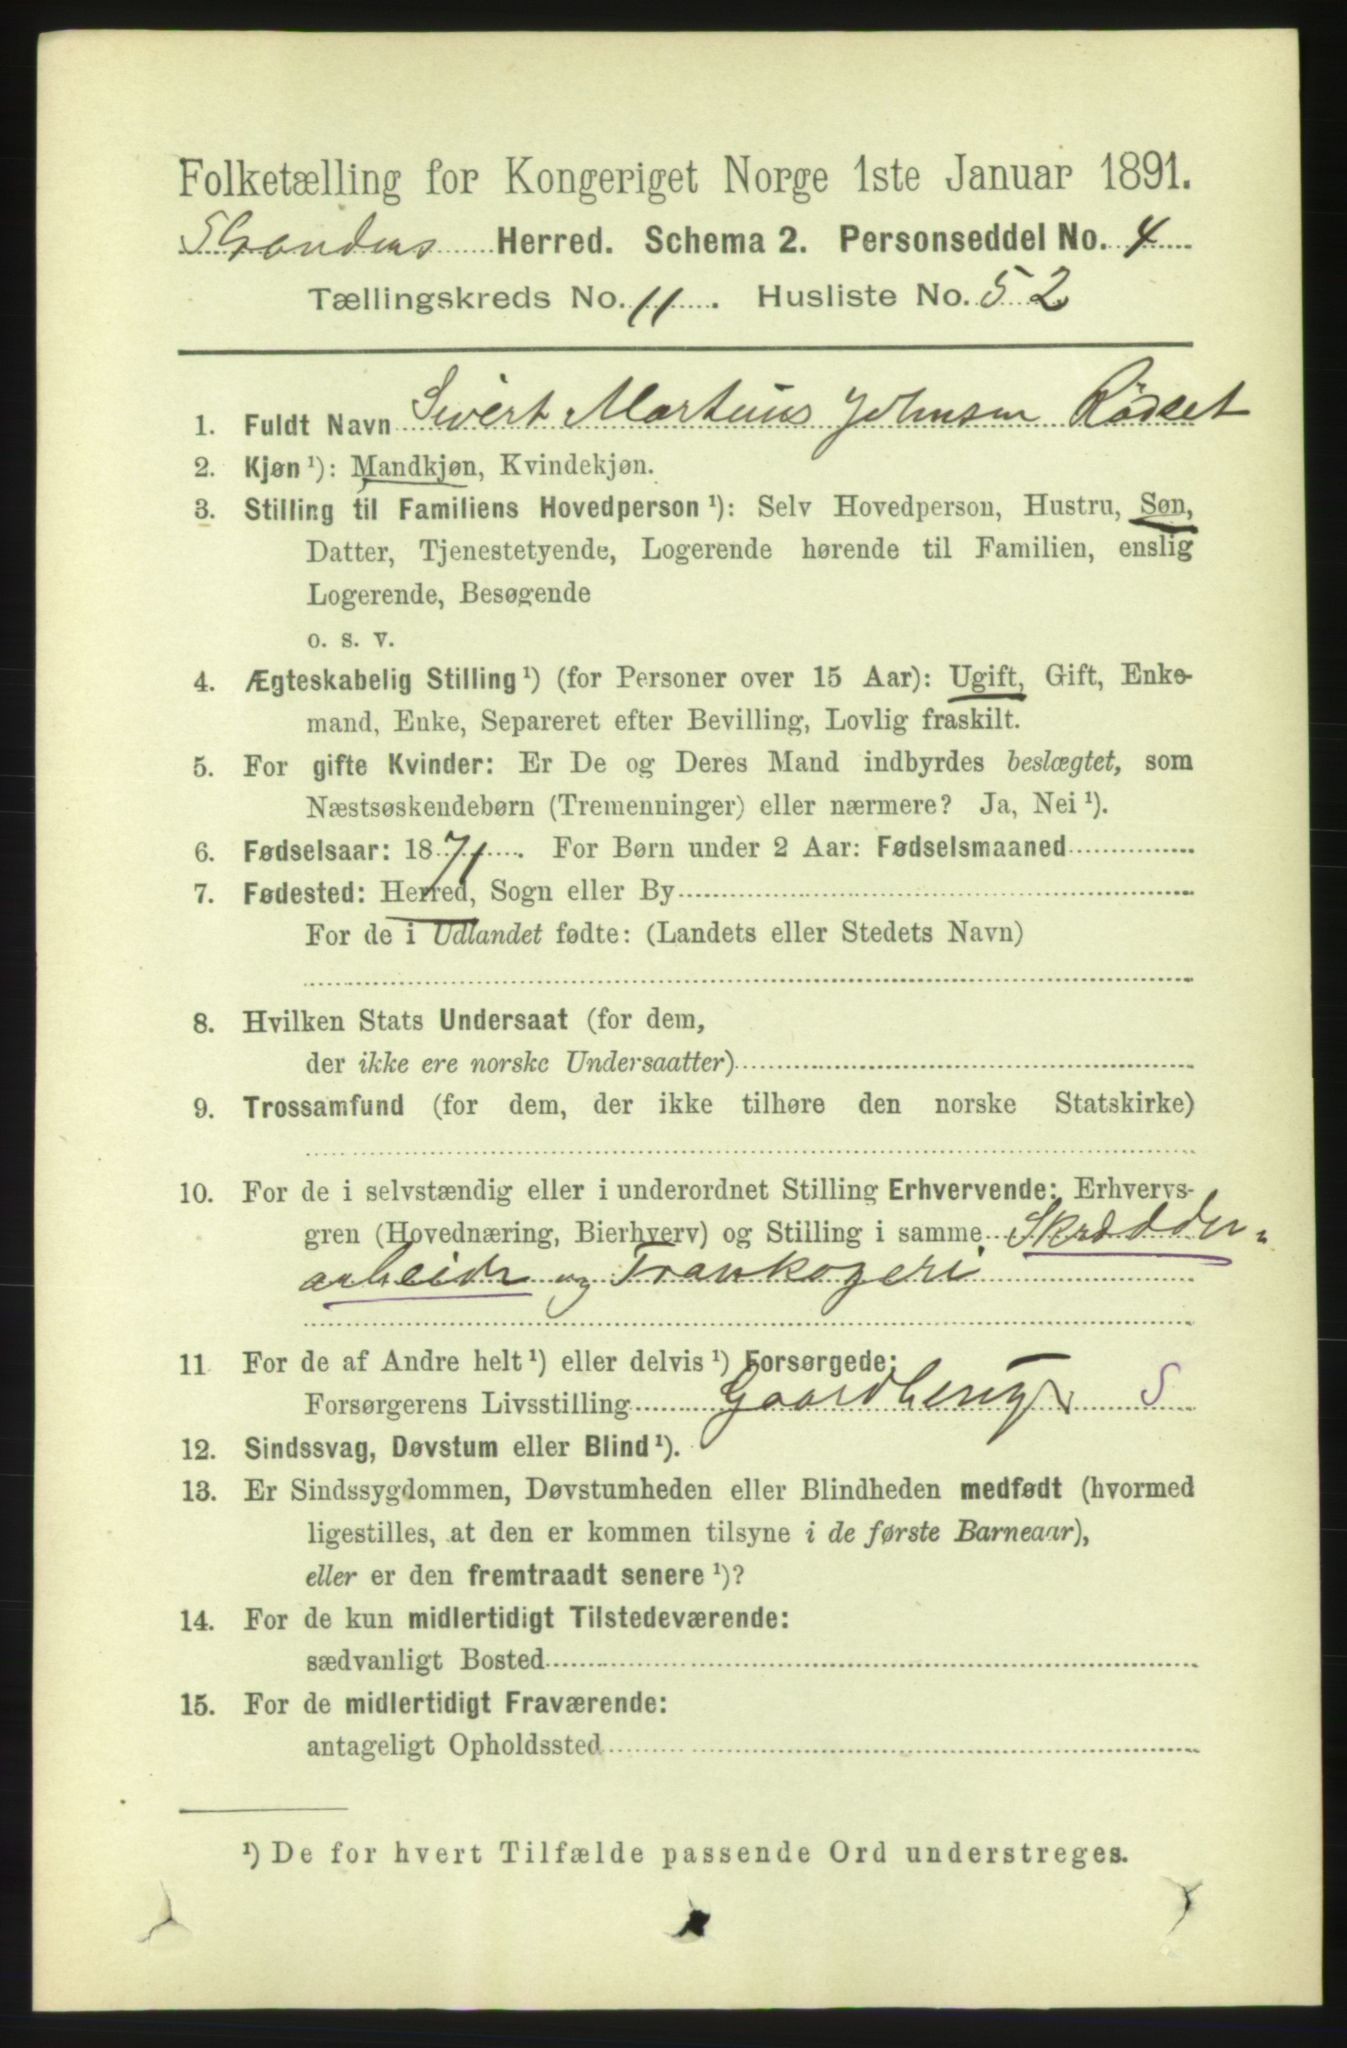 Folketælling for Kongeriget Norge 1ste Januar 1891.
Strandens Herred. Schema 2. Personseddel No. 4
Tællingskreds No. 11. Husliste No. 52
1. Fuldt Navn Sivert Martinus Johnsen Rödset
2. Kjøn ¹): Mandkjøn, Kvindekjøn.
3. Stilling til Familiens Hovedperson ¹): Selv Hovedperson, Hustru, Søn,
Datter, Tjenestetyende, Logerende hørende til Familien, enslig
Logerende, Besøgende
o. s. v.
4. Ægteskabelig Stilling ¹) (for Personer over 15 Aar): Ugift, Gift, Enke-
mand, Enke, Separeret efter Bevilling, Lovlig fraskilt.
5. For gifte Kvinder: Er De og Deres Mand indbyrdes beslægtet, som
Næstsøskendebørn (Tremenninger) eller nærmere? Ja, Nei ¹).
6. Fødselsaar: 1871. For Børn under 2 Aar: Fødselsmaaned
7. Fødested: Herred, Sogn eller By
For de i Udlandet fødte: (Landets eller Stedets Navn)
8. Hvilken Stats Undersaat (for dem,
der ikke ere norske Undersaatter)
9. Trossamfund (for dem, der ikke tilhøre den norske Statskirke)
10. For de i selvstændig eller i underordnet Stilling Erhvervende: Erhvervs-
gren (Hovednæring, Bierhverv) og Stilling i samme Skrædder-
arbeide og Trankogeri
11 For de af Andre helt ¹) eller delvis ¹) Forsørgede:
Forsørgerens Livsstilling Gaardbrug S
12. Sindssvag, Døvstum eller Blind ¹).
13. Er Sindssygdommen, Døvstumheden eller Blindheden medfødt (hvormed
ligestilles, at den er kommen tilsyne i de første Barneaar),
eller er den fremtraadt senere ¹)?
14. For de kun midlertidigt Tilstedeværende:
sædvanligt Bosted
15. For de midlertidigt Fraværende:
antageligt Opholdssted
¹) De for hvert Tilfælde passende Ord understreges.